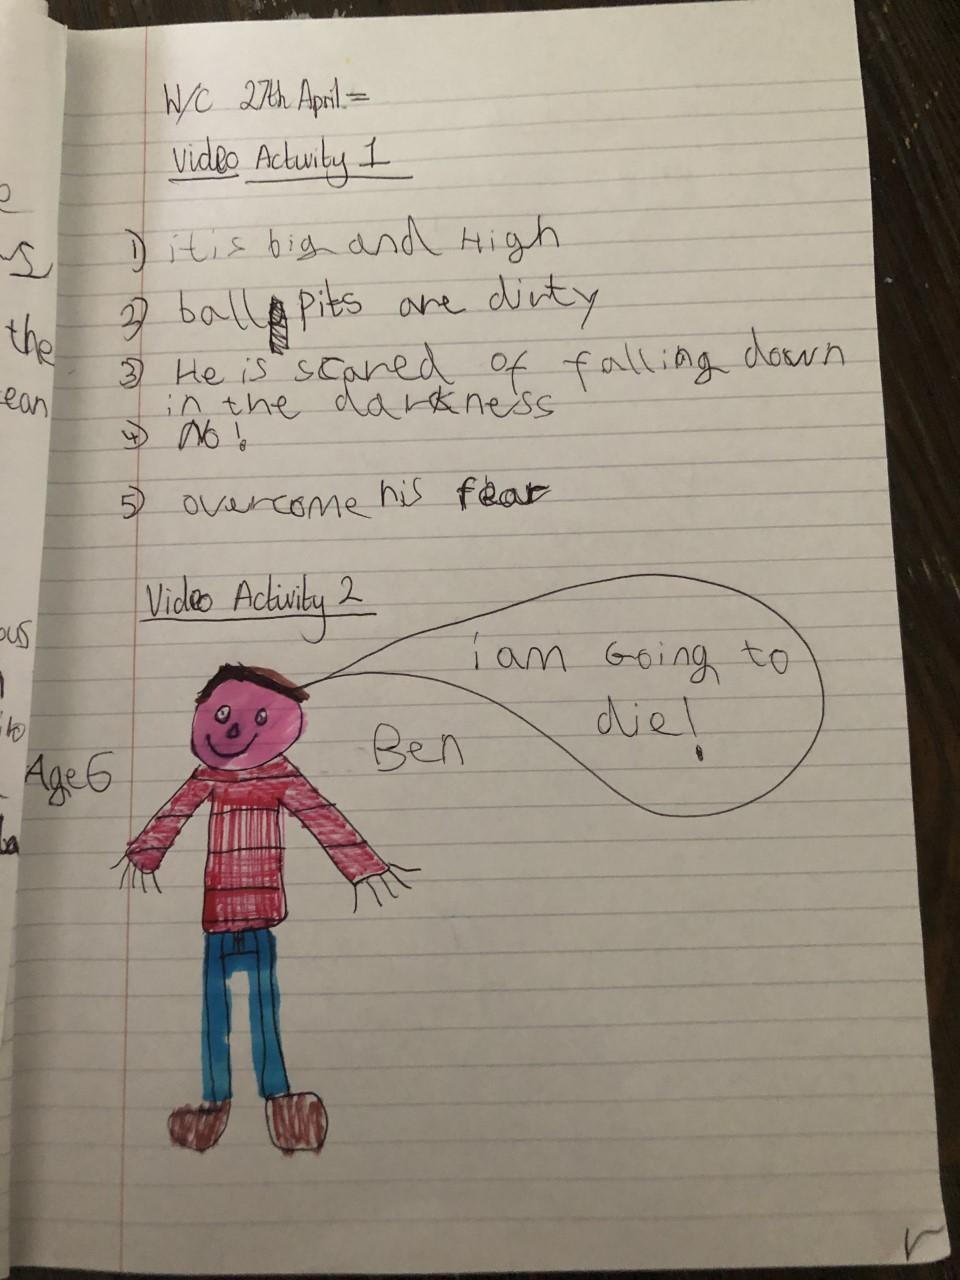 W/C 27th April =
Video Activity 1
1) it is big and High
2) ball pits are dirty
3) He is scared of falling down
in the darkness
4) No!
5) overcome his fear
Video Activity 2
i am Going to
die!
Ben
Age 6
the
ean
ous